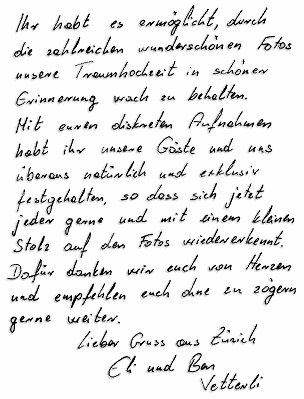 Ihr habt es ermöglicht, durch
die zahlreichen wunderschönen Fotos
unsere Traumhochzeit in schöner
Erinnerung wach zu behalten.
Mit euren diskreten Aufnahmen
habt ihr unsere Gäste und uns
überaus natürlich und exklusiv
festgehalten, so dass sich jetzt
jeder gerne und mit einem kleinen
Stolz auf den Fotos wiedererkennt.
Dafür danken wir euch von Herzen
und empfehlen euch ohne zu zögern
gerne weiter.
Lieber Gruss aus Zürich
Eli und Ben
Vetterli